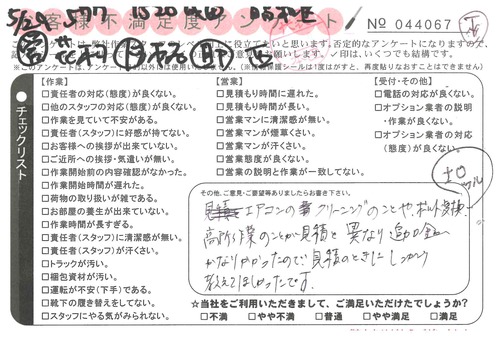 お客様不満足度アンケート
№ 044067
【作業】
□責任者の対応(態度)が良くない。
□他のスタッフの対応(態度)が良くない。
□作業を見ていて不安がある。
□責任者(スタッフ)に好感が持てない。
□お客様への挨拶が出来ていない。
□ご近所への挨拶・気遣いが無い。
□作業開始前の内容確認がなかった。
□作業開始時間が遅れた。
□荷物の取り扱いが雑である。
□お部屋の養生が出来ていない。
□作業時間が長すぎる。
□責任者(スタッフ)に清潔感が無い。
□責任者(スタッフ)が汗くさい。
□トラックが汚い。
□梱包資材が汚い。
□運転が不安(下手)である。
□靴下の履き替えをしてない。
□スタッフにやる気がみられない。
●チェックリスト
【営業】
□見積もり時間に遅れた。
□見積もり時間が長い。
□営業マンに清潔感が無い。
□営業マンが煙草くさい。
□営業マンが汗くさい。
□営業態度が良くない。
□営業の説明と作業が一致してない。
【受付・その他】
□電話の対応が良くない。
□オプション業者の説明
・作業が良くない。
□オプション業者の対応
(態度)が良くない。
その他、ご意見・ご要望等ありましたらお書き下さい。
エアコンの クリーニングのことや、ボルト交換、
高所作業のことが見積と異なり追加金が
かなりかかったので、見積のときにしっかり
教えてほしかったです。
☆当社をご利用いただきまして、ご満足いただけたでしょうか?
□不満 □やや不満 □普通 □やや満足 □満足